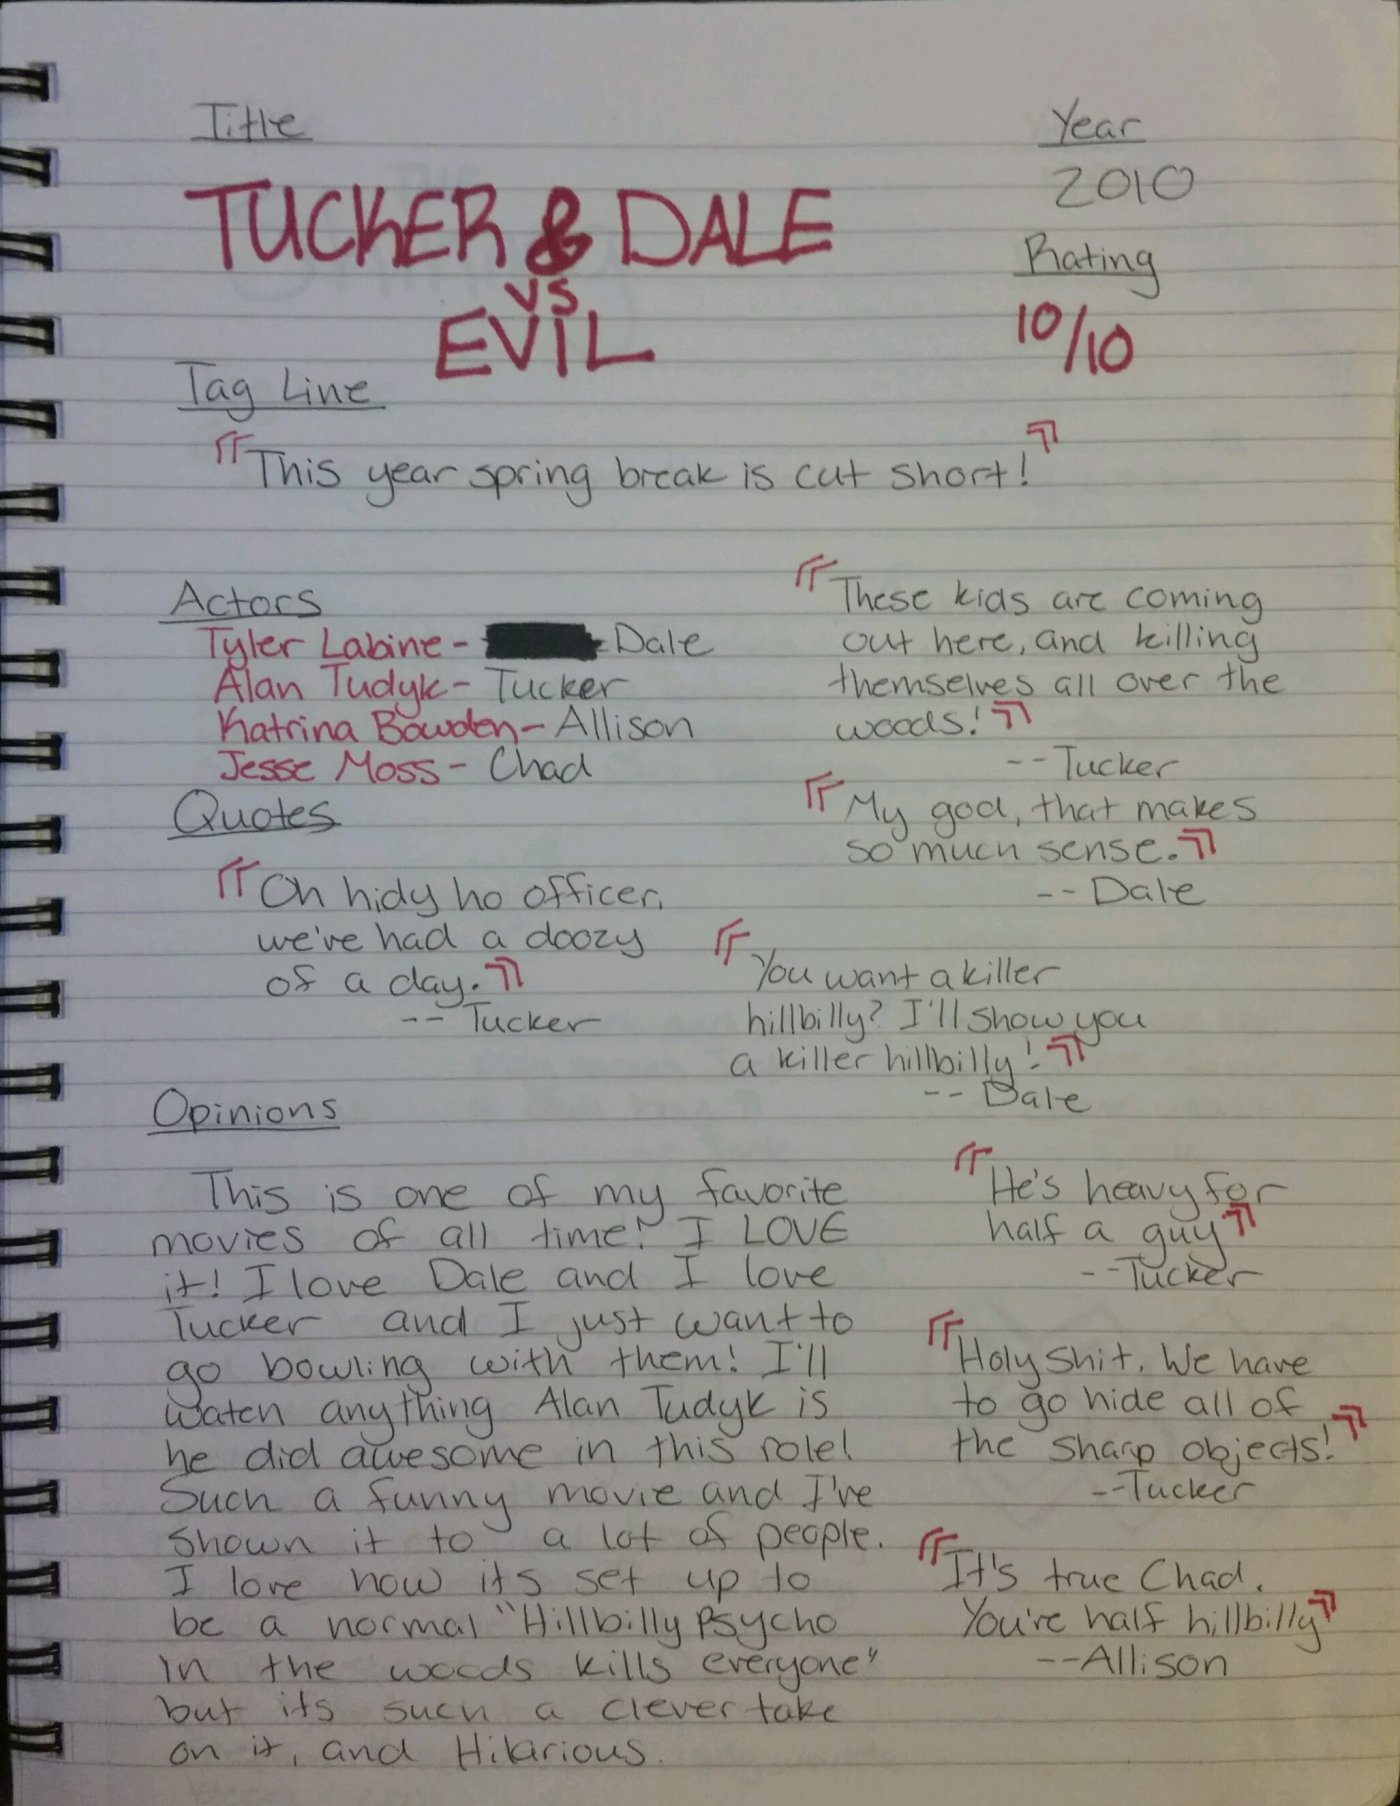 Title
TUCKER & DALE
VS
EVIL
Year
2010
Rating
10/10
Tag Line
"This year spring break is cut short!"
Actors
Tyler Labine - Dale
Alan Tudyk - Tucker
Katrina Bowden - Allison
Jesse Moss - Chad
Quotes
"Oh hidy ho officer,
we've had a doozy
of a day."
-- Tucker
"These kids are coming
out here, and killing
themselves all over the
woods!"
-- Tucker
"My god, that makes
so much sense."
-- Dale
"You want a killer
hillbilly? I'll show you
a killer hillbilly!"
-- Dale
"He's heavy for
half a guy"
--Tucker
"Holy shit. We have
to go hide all of
the sharp objects!"
--Tucker
"It's true Chad.
You're half hillbilly"
--Allison
Opinions
This is one of my favorite
movies of all time! I LOVE
it! I love Dale and I love
Tucker and I just want to
go bowling with them! I'll
watch anything Alan Tudyk is
he did awesome in this role!
Such a funny movie and I've
shown it to a lot of people.
I love how its set up to
be a normal "Hillbilly Psycho
in the woods kills everyone"
but its such a clever take
on it, and Hilarious.